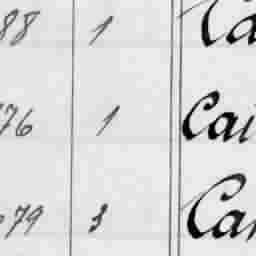 88 1 Ca
76 1 Cai
79 3 Car